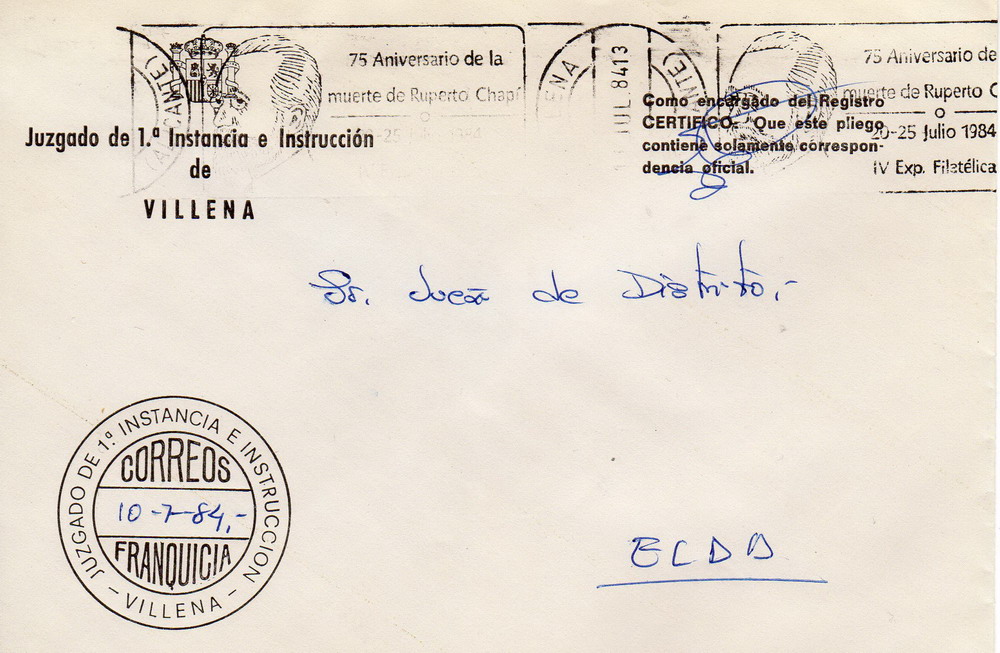 75 Aniversario de la
muerte de Ruperto Chapí
20-25 1984
ALICANTE)
Juzgado de 1.ª Instancia e Instrucción
de
VILLENA
ENA
ANTE)
JUL. 8413
75 Aniversario de
muerte de Ruperto C
20-25 Julio 1984
IV Exp. Filatélica
Como encargado del Registro
CERTIFICO: Que este pliego
contiene solamente correspon-
dencia oficial.
Sr. Juez de Distrito,-
JUZGADO DE 1ª. INSTANCIA E INSTRUCCION
CORREOS
10-7-84,-
FRANQUICIA
- VILLENA -
ELDA